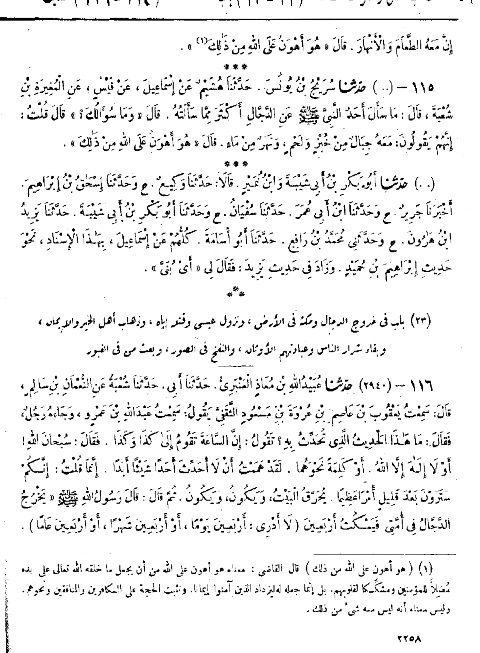 إنَّ مَعَهُ الطَّعَامَ وَالْأَنْهَارَ. قَالَ « هُوَ أَهْوَنُ عَلَى اللهِ مِنْ ذَلِكَ (١) » .
***
١١٥ – (..) حَدَّثَنَا سُرَيْجُ بْنُ يُونُسَ . حَدَّثَنَا هُشَيْمٌ عَنْ إِسْمَاعِيلَ ، عَنْ قَيْسٍ ، عَنِ الْمُغِيرَةِ بْنِ
شُعْبَةَ ، قَالَ : مَا سَأَلَ أَحَدٌ النَّبِيَّ ﷺ عَنِ الدَّجَّالِ أَكْثَرَ مِمَّا سَأَلْتُهُ . قَالَ « وَمَا سُؤَالُكَ ؟ » قَالَ قُلْتُ :
إِنَّهُمْ يَقُولُونَ : مَعَهُ جِبَالٌ مِنْ خُبْزٍ وَلَحْمٍ ، وَنَهَرٌ مِنْ مَاءٍ . قَالَ « هُوَ أَهْوَنُ عَلَى اللهِ مِنْ ذَلِكَ » .
***
(..) حَدَّثَنَا أَبُو بَكْرِ بْنُ أَبِي شَيْبَةَ وَابْنُ نُمَيْرٍ . قَالَا : حَدَّثَنَا وَكِيعٌ . ح وَحَدَّثَنَا إِسْحَٰقُ بْنُ إِبْرَاهِيمَ .
أَخْبَرَنَا جَرِيرٌ . ح وَحَدَّثَنَا ابْنُ أَبِي عُمَرَ . حَدَّثَنَا سُفْيَانُ . ح وَحَدَّثَنَا أَبُو بَكْرِ بْنُ أَبِي شَيْبَةَ . حَدَّثَنَا يَزِيدُ
ابْنُ هَارُونَ . ح وَحَدَّثَنِي مُحَمَّدُ بْنُ رَافِعٍ . حَدَّثَنَا أَبُو أُسَامَةَ . كُلُّهُمْ عَنْ إِسْمَاعِيلَ ، بِهَٰذَا الْإِسْنَادِ ، نَحْوَ
حَدِيثِ إِبْرَاهِيمَ بْنِ حُمَيْدٍ . وَزَادَ فِي حَدِيثِ يَزِيدَ : فَقَالَ لِي « أَيْ بُنَيَّ » .
***
(٢٣) باب في خروج الدجال ومكثه في الأرض ، ونزول عيسى وقتله إياه ، وذهاب أهل الخير والإيمان ،
وبقاء شرار الناس وعبادتهم الأوثان ، والنفخ في الصور ، وبعث من في القبور
١١٦ – (٢٩٤٠) حَدَّثَنَا عُبَيْدُ اللهِ بْنُ مُعَاذٍ الْعَنْبَرِيُّ . حَدَّثَنَا أَبِي . حَدَّثَنَا شُعْبَةُ عَنِ النُّعْمَانِ بْنِ سَالِمٍ ،
قَالَ : سَمِعْتُ يَعْقُوبَ بْنَ عَاصِمِ بْنِ عُرْوَةَ بْنِ مَسْعُودٍ الثَّقَفِيَّ يَقُولُ : سَمِعْتُ عَبْدَ اللهِ بْنَ عَمْرٍو ، وَجَاءَهُ رَجُلٌ ،
فَقَالَ : مَا هَٰذَا الْحَدِيثُ الَّذِي تُحَدِّثُ بِهِ ؟ تَقُولُ : إِنَّ السَّاعَةَ تَقُومُ إِلَى كَذَا وَكَذَا . فَقَالَ : سُبْحَانَ اللهِ !
أَوْ لَا إِلَٰهَ إِلَّا اللهُ . أَوْ كَلِمَةً نَحْوَهُمَا . لَقَدْ هَمَمْتُ أَنْ لَا أُحَدِّثَ أَحَدًا شَيْئًا أَبَدًا . إِنَّمَا قُلْتُ : إِنَّكُمْ
سَتَرَوْنَ بَعْدَ قَلِيلٍ أَمْرًا عَظِيمًا . يُحَرَّقُ الْبَيْتُ ، وَيَكُونُ ، وَيَكُونُ . ثُمَّ قَالَ : قَالَ رَسُولُ اللهِ ﷺ « يَخْرُجُ
الدَّجَّالُ فِي أُمَّتِي فَيَمْكُثُ أَرْبَعِينَ ( لَا أَدْرِي : أَرْبَعِينَ يَوْمًا ، أَوْ أَرْبَعِينَ شَهْرًا ، أَوْ أَرْبَعِينَ عَامًا ) .
(١) ( هو أهون على الله من ذلك ) قال القاضي : معناه هو أهون على الله من أن يجعل ما خلقه الله تعالى على يده
مُضِلًّا للمؤمنين ومشككا لقلوبهم . بل إنما جعله له ليزداد الذين آمنوا إيمانا ، وتثبت الحجة على الكافرين والمنافقين ونحوهم .
وليس معناه أنه ليس معه شيء من ذلك .
٢٢٥٨